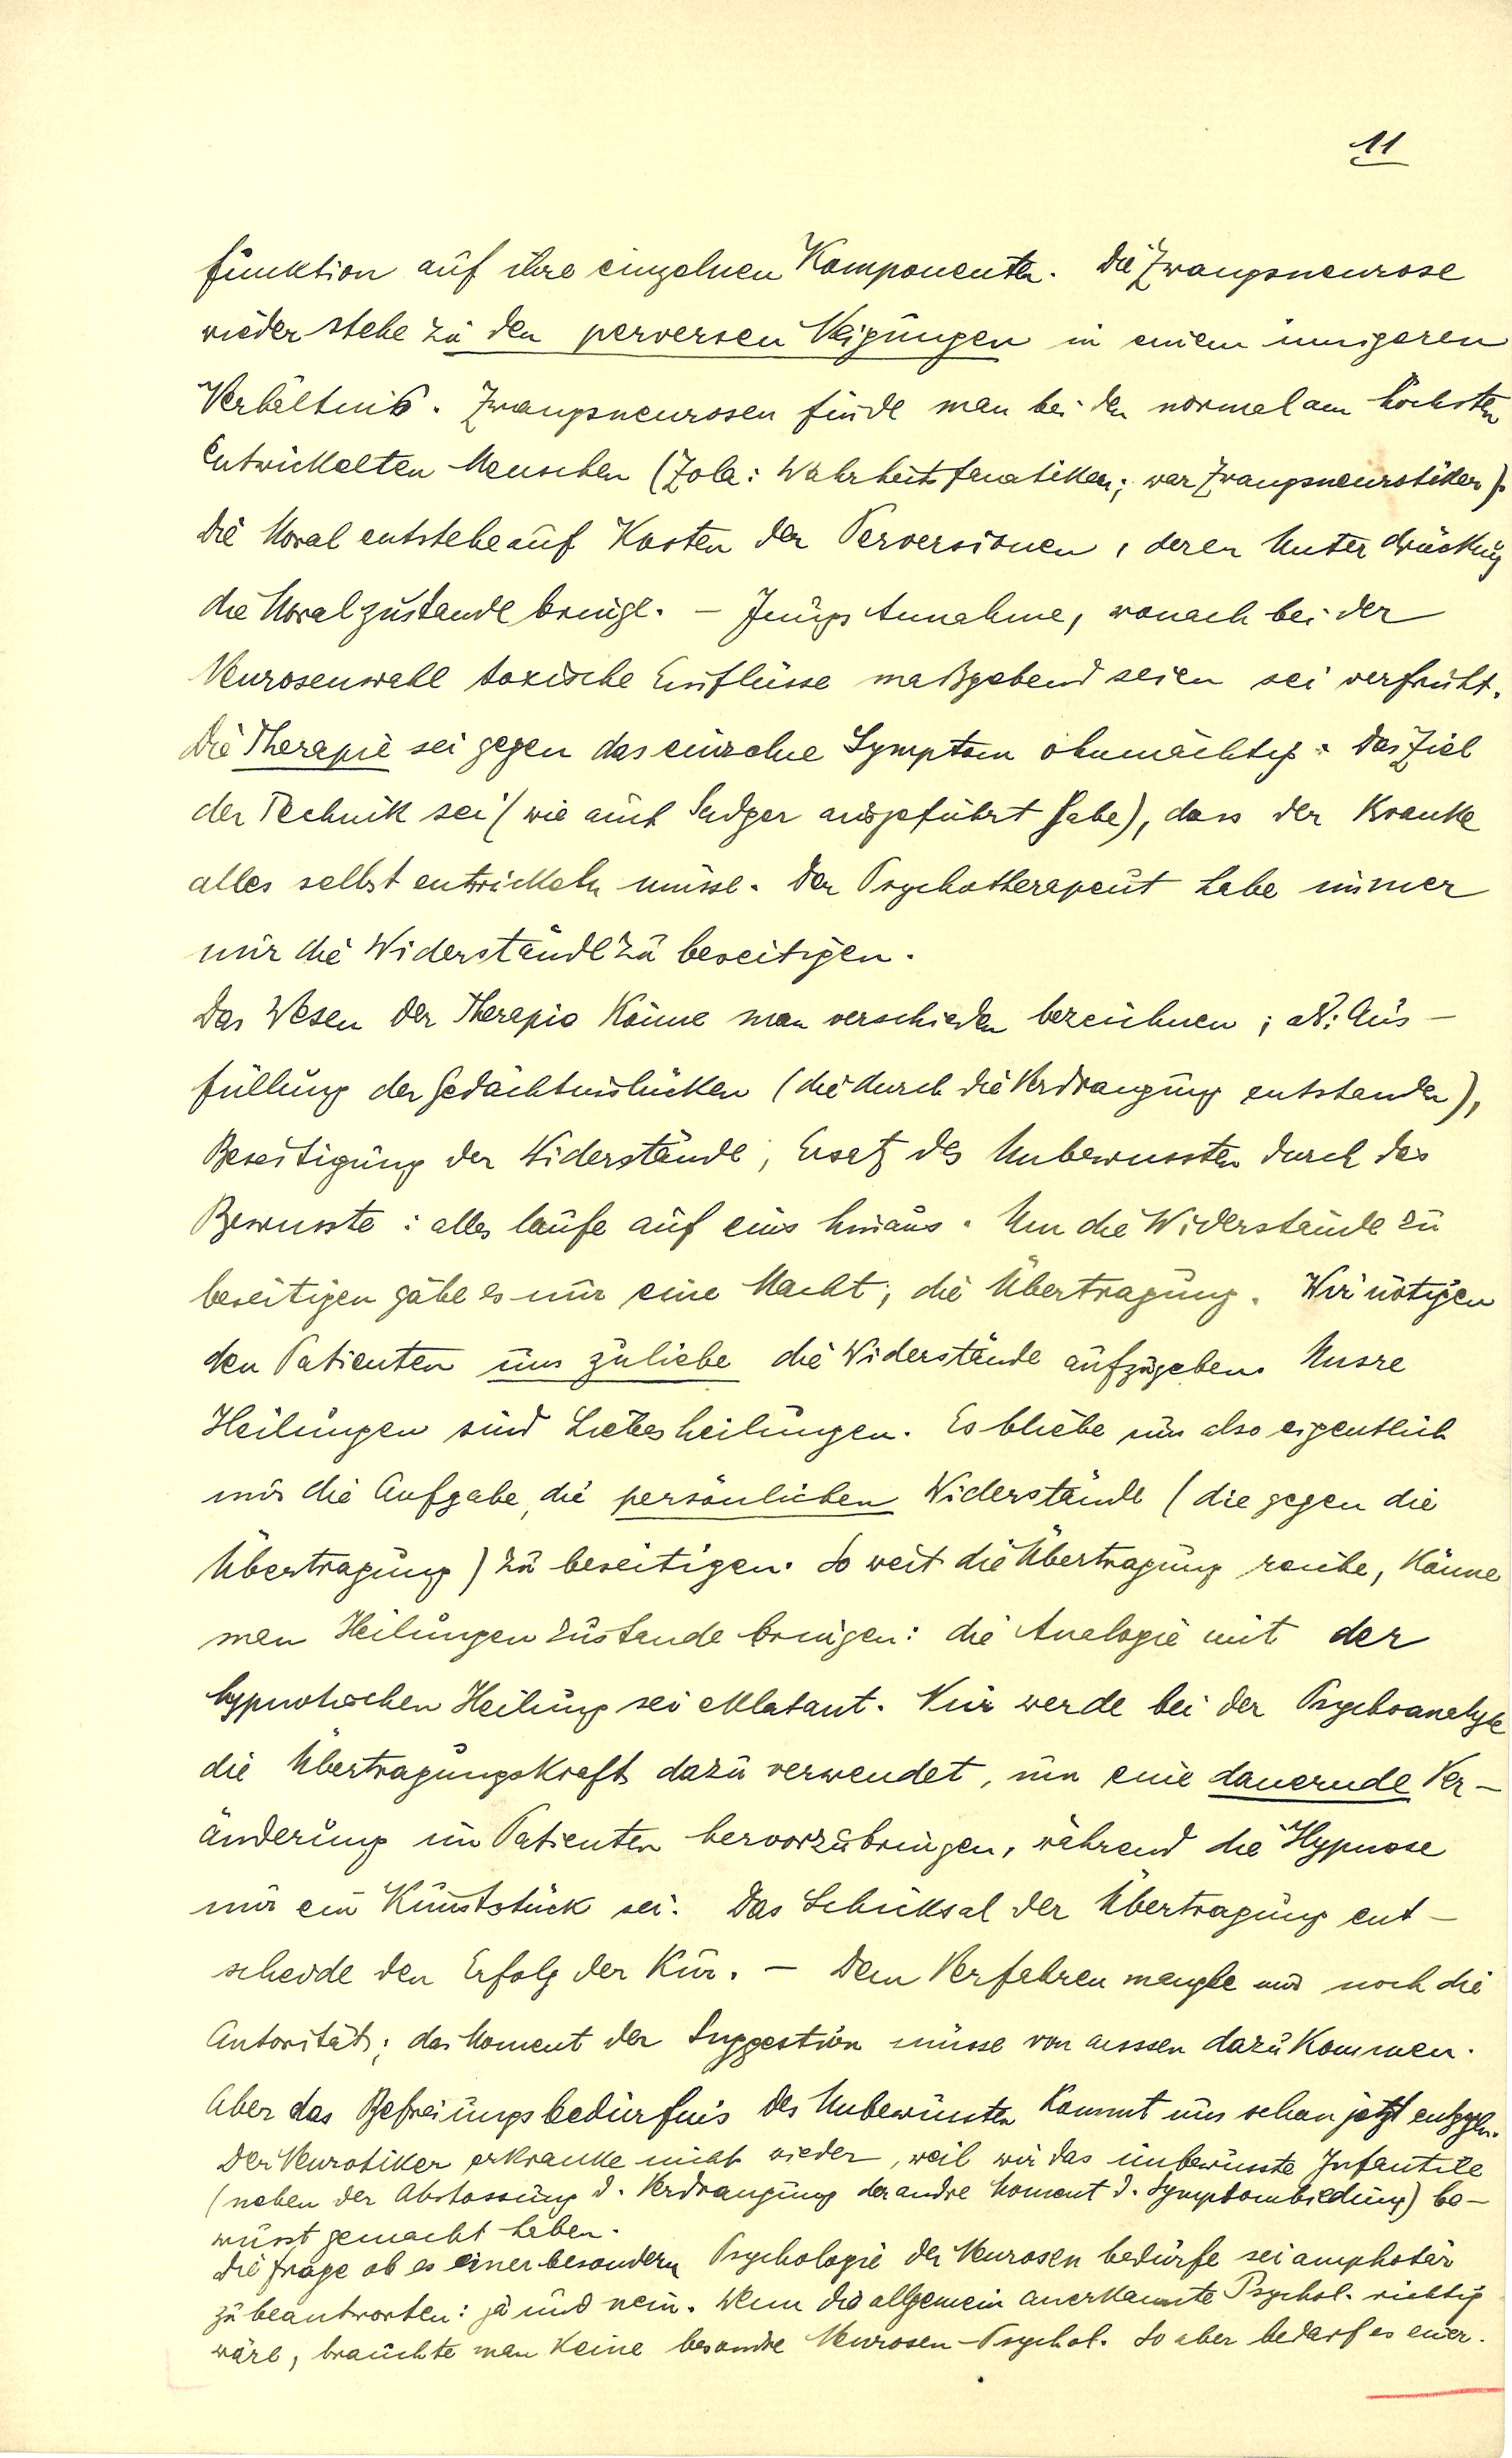 11
funktion auf ihre einzelnen Komponenten. Die Zwangsneurose
wieder stehe zu den perversen Neigungen in einem innigeren
Verhältnis. Zwangsneurosen finde man bei den normal am höchsten
entwickelten Menschen (Zola: Wahrheitsfanatiker; war Zwangsneurotiker).
Die Moral entstehe auf Kosten der Perversionen, deren Unterdrückung
die Moral zustande bringe. – Jungs Annahme, wonach bei der
Neurosenwahl toxische Einflüsse maßgebend seien sei verfrüht.
Die Therapie sei gegen das einzelne Symptom ohnmächtig. Das Ziel
der Technik sei (wie auch Sadger ausgeführt habe), dass der Kranke
alles selbst entwickeln müsse. Der Psychotherapeut habe immer
nur die Widerstände zu beseitigen.
Das Wesen der Therapie könne man verschieden bezeichnen; als: Aus-
füllung der Gedächtnislücken (die durch die Verdrängung entstanden),
Beseitigung der Widerstände, Ersatz des Unbewussten durch das
Bewusste: alles laufe auf eins hinaus. Um die Widerstände zu
beseitigen gäbe es nur eine Macht; die Übertragung. Wir nötigen
den Patienten uns zuliebe die Widerstände aufzugeben. Unsre
Heilungen sind Liebesheilungen. Es bliebe uns also eigentlich
nur die Aufgabe, die persönlichen Widerstände (die gegen die
Übertragung) zu beseitigen. So weit die Übertragung reiche, könne
man Heilungen zustande bringen: die Analogie mit der
hypnotischen Heilung sei eklatant. Nur werde bei der Psychoanalyse
die Übertragungskraft dazu verwendet, um eine dauernde Ver-
änderung im Patienten hervorzubringen, während die Hypnose
nur ein Kunststück sei. Das Schicksal der Übertragung ent-
scheide den Erfolg der Kur. – Dem Verfahren mangle nur noch die
Autorität; das Moment der Suggestion müsse von aussen dazu kommen.
Aber das Befreiungsbedürfnis des Unbewussten kommt uns schon jetzt entgegen.
Der Neurotiker erkranke nicht wieder, weil wir das unbewusste Infantile
(neben der Abstossung d. Verdrängung der andre Moment d. Symptombildung) be-
wusst gemacht haben.
Die Frage ob es einer besondern Psychologie der Neurosen bedürfe sei amphotär
zu beantworten: ja und nein. Wenn die allgemein anerkannte Psychol. richtig
wäre, brauchte man keine besondre Neurosen-Psychol. So aber bedarf es einer.